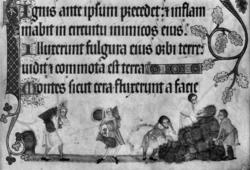 Ignis ante ipsum precedet: ⁊ inflam
mabit in circuitu inimicos eius.
Illuxerunt fulgura eius orbi terre:
uidit ⁊ commota est terra
Montes sicut cera fluxerunt a facie